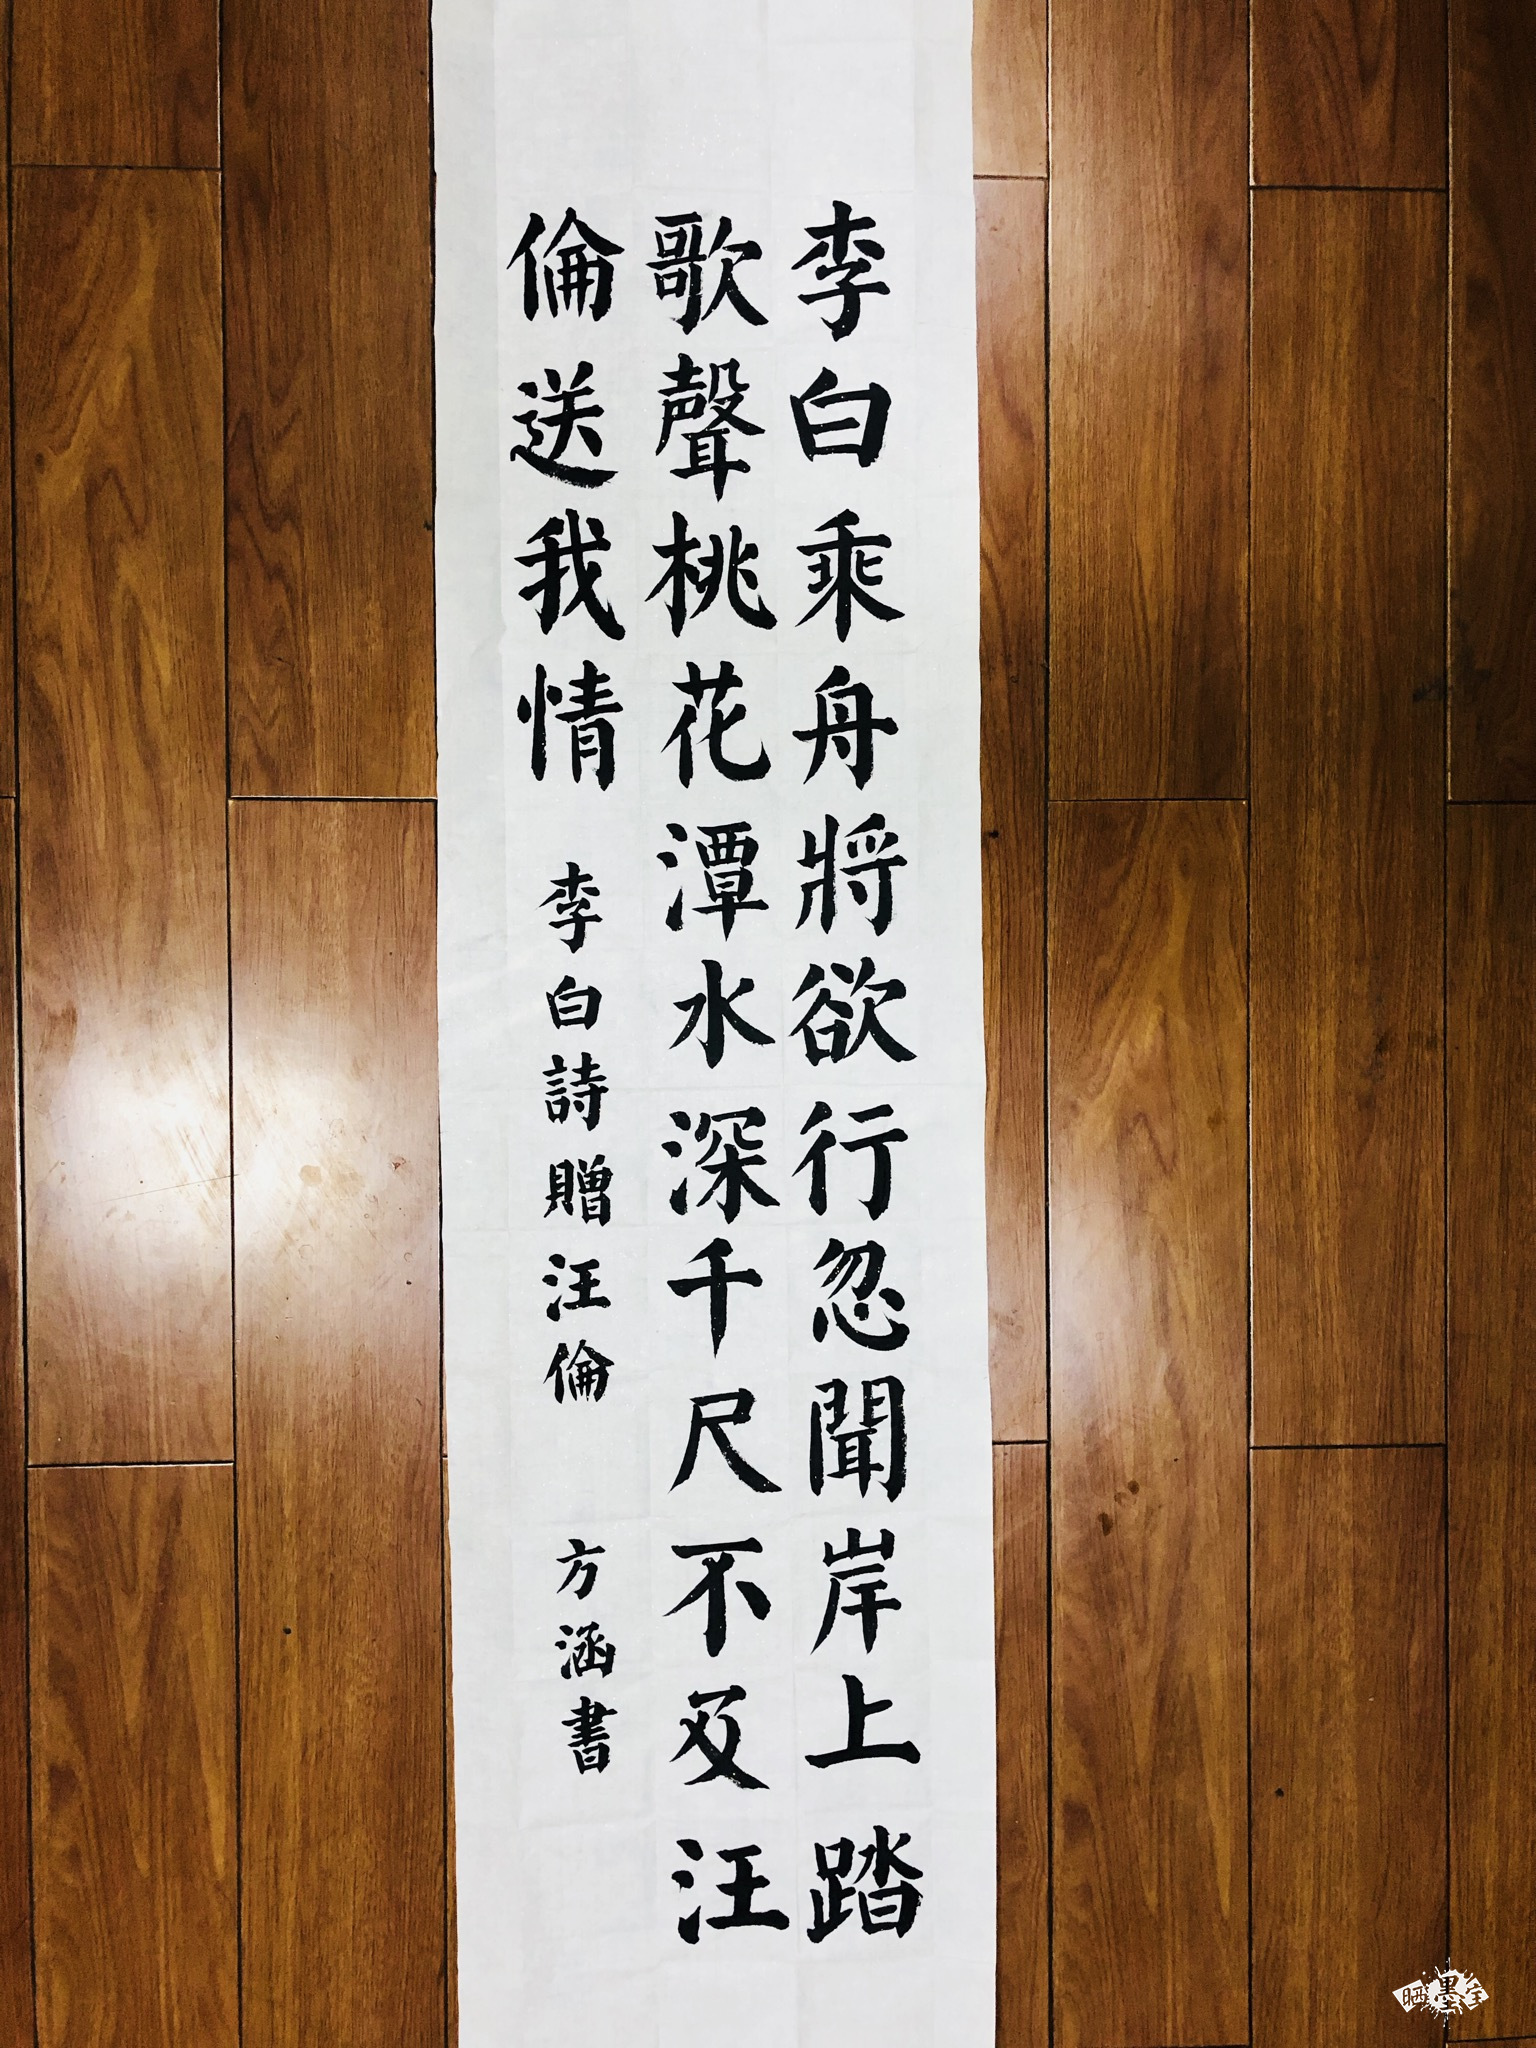 李白乘舟將欲行忽聞岸上踏
歌聲桃花潭水深千尺不及汪
倫送我情
李白詩贈汪倫
方涵書
晒墨宝